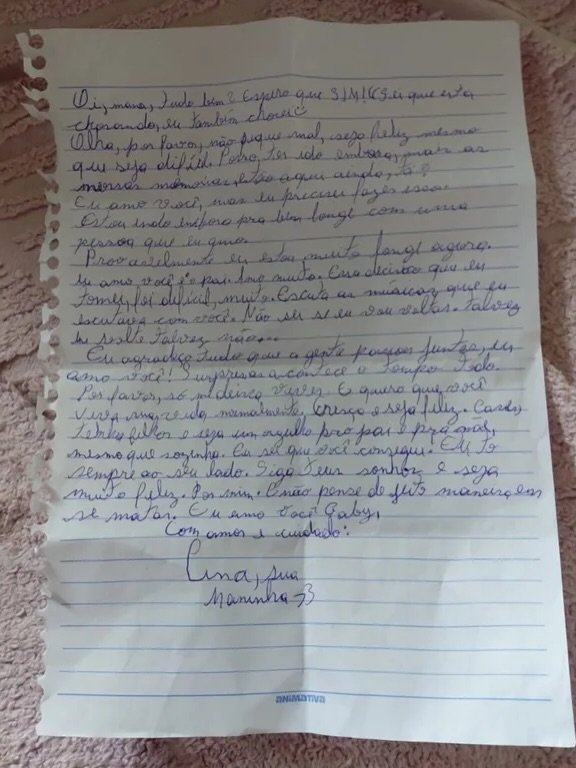 Oi, mana, tudo bem? Espero que sim! Sei que esta
chorando, eu também chorei
Olha, por favor, não fique mal, seja feliz mesmo
que seja difícil. Posso ter ido embora, mais as
nossas memórias, estão aqui ainda, tá?
Eu amo você, mas eu preciso fazer isso.
Estou indo embora pra bem longe com uma
pessoa que eu amo.
Provavelmente eu estou muito longe agora.
Eu amo você e o pai. Amo muito. Essa decisão que eu
tomei, foi difícil, muito. Escuta as músicas, que eu
escutava com você. Não sei se eu vou voltar. Talvez
eu volte talvez não...
Eu agradeço tudo que a gente passou juntas, eu
amo você! Surpresas acontece o tempo todo.
Por favor, só me deixa viver. E quero que você
viva sua vida normalmente, cresça e seja feliz. Case,
tenha filhos e seja um orgulho pro pai e pra mãe,
mesmo que sozinha. Eu sei que você consegue. Eu to
sempre ao seu lado. Siga teus sonhos e seja
muito feliz. Por mim. E não pense de jeito maneira em
se matar. Eu amo você Gaby,
Com amor e cuidado:
sua
Maninha <3
ANIMATIVA